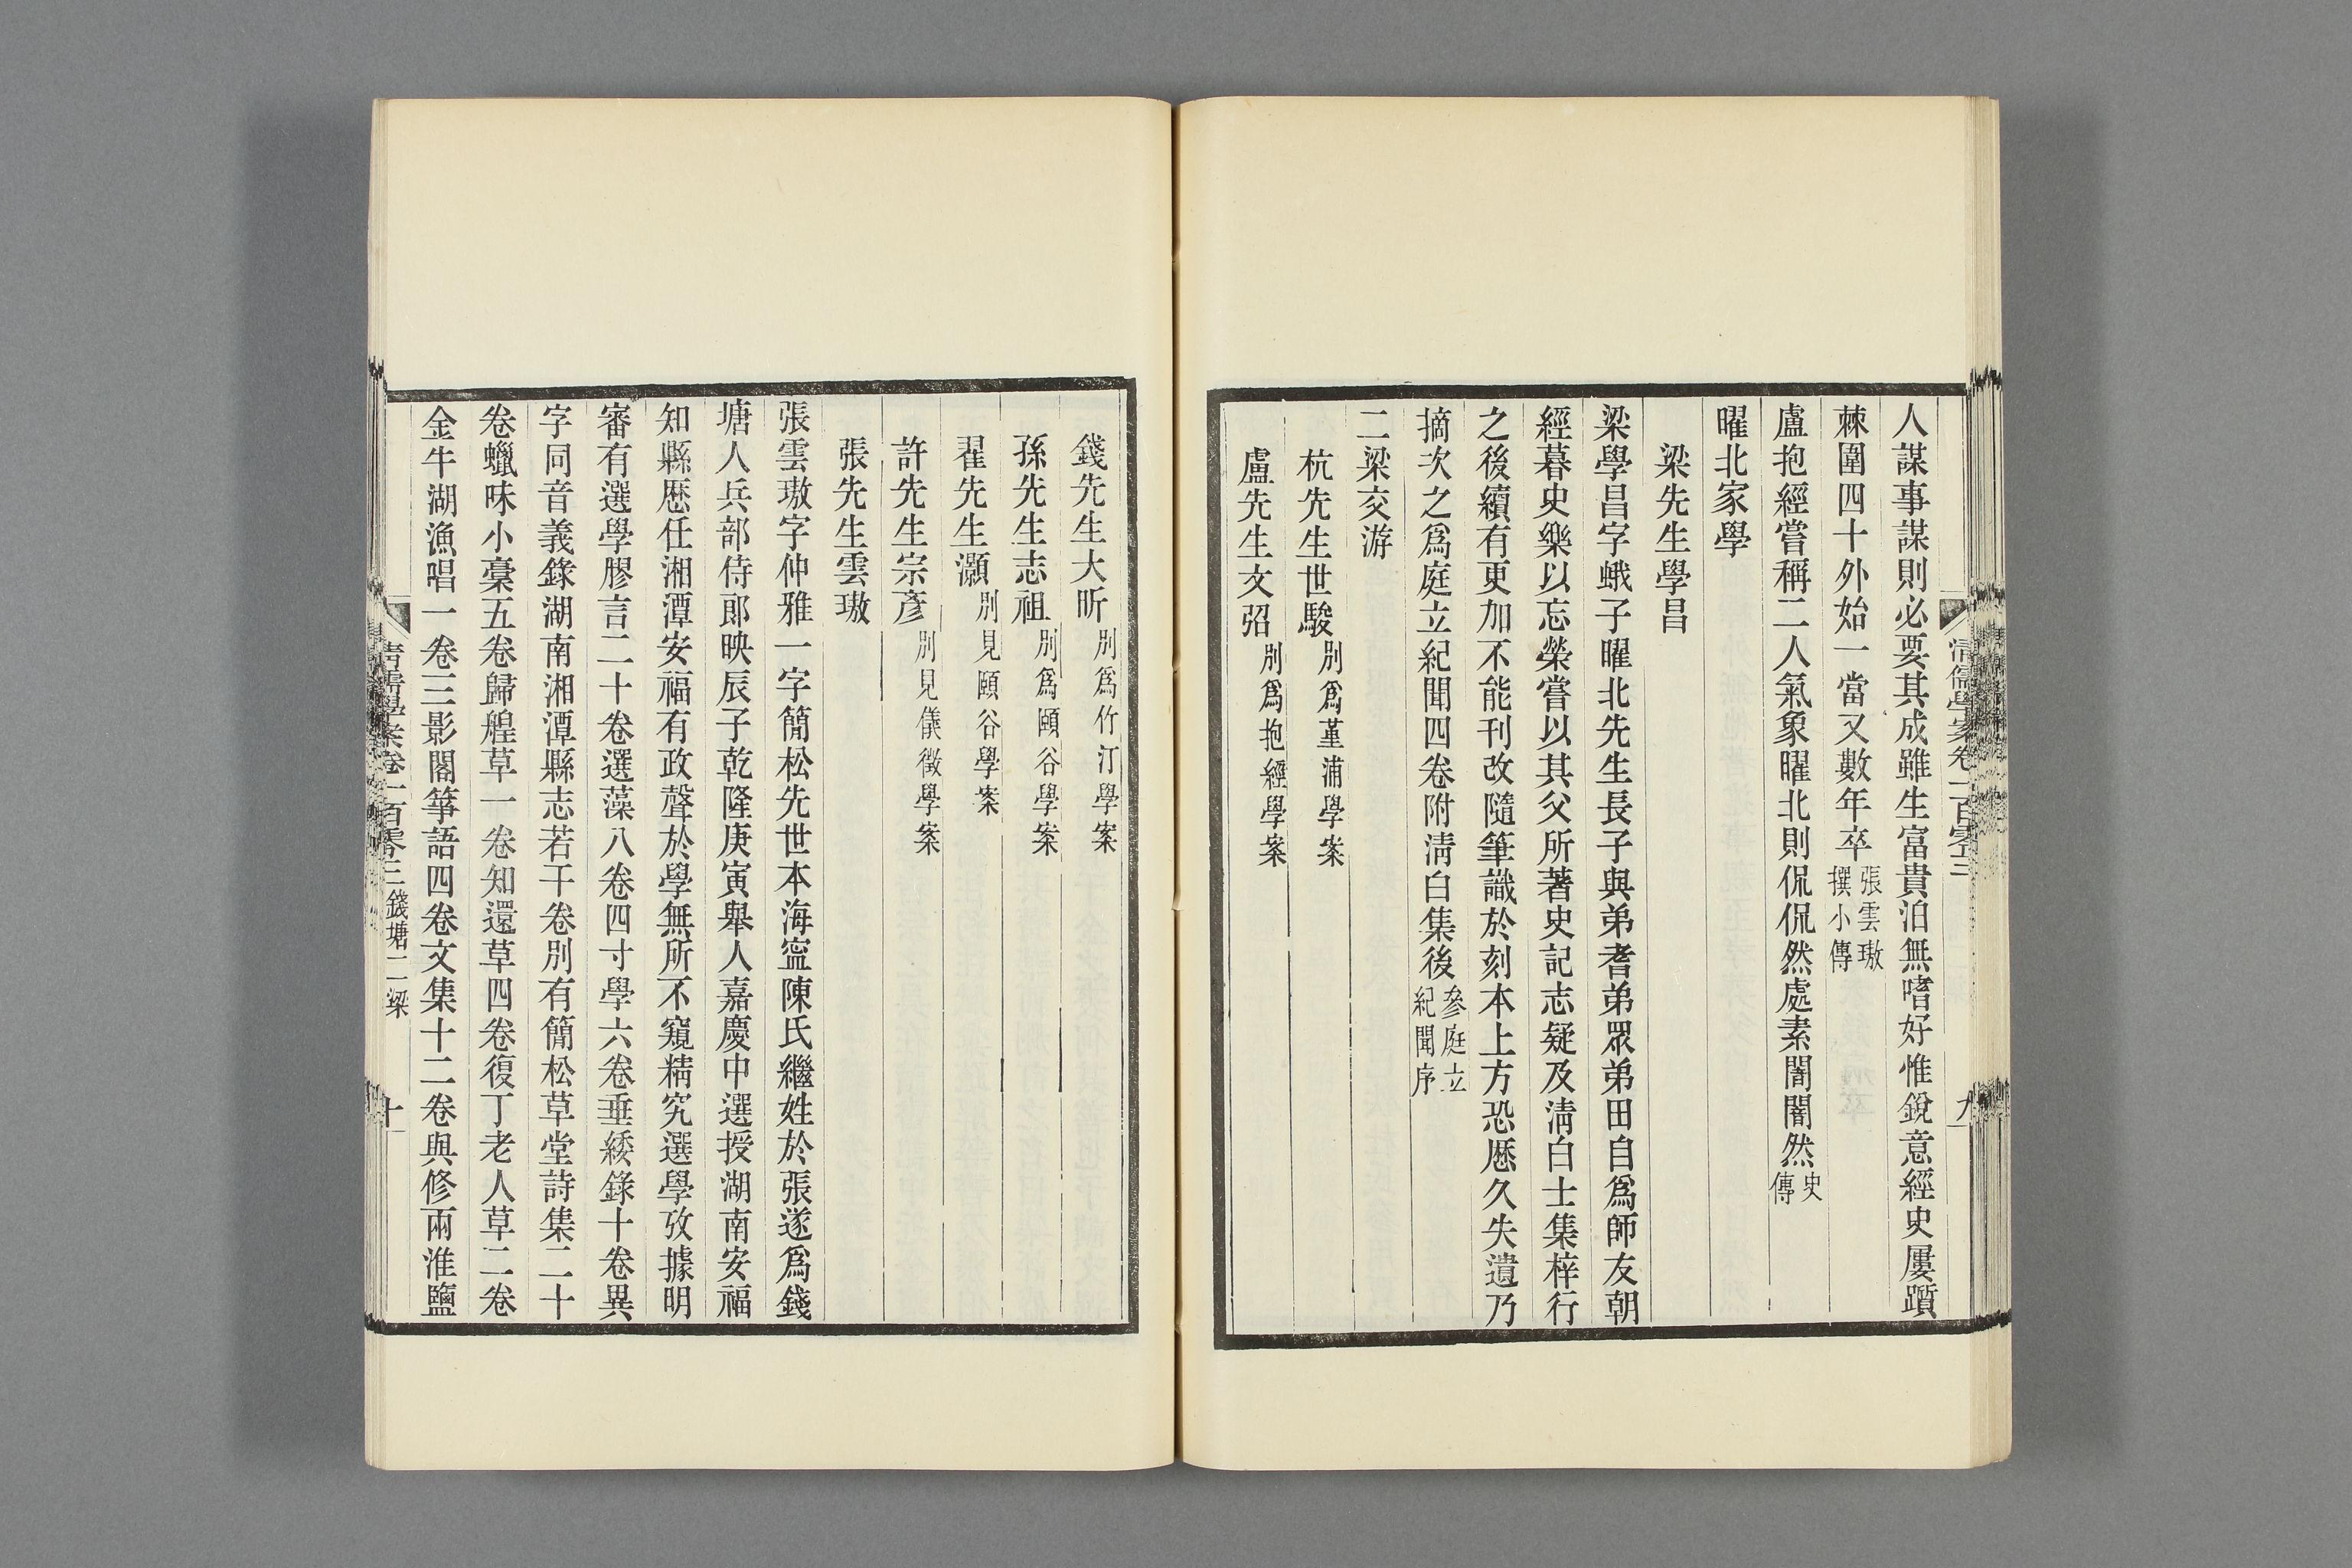 清儒學案卷一百零三
九
人謀事謀則必要其成雖生富貴泊無嗜好惟銳意經史屢躓
棘圍四十外始一當又數年卒張雲璈撰小傳
盧抱經嘗稱二人氣象曜北則侃侃然處素誾誾然史傳
曜北家學
梁先生學昌
梁學昌字蛾子曜北先生長子與弟耆弟眾弟田自爲師友朝
經暮史樂以忘榮嘗以其父所著史記志疑及淸白士集梓行
之後續有更加不能刊改隨筆識於刻本上方恐歷久失遺乃
摘次之爲庭立紀聞四卷附淸白集後參庭立紀聞序
二梁交游
杭先生世駿別爲堇浦學案
盧先生文弨別爲抱經學案
錢先生大昕別爲竹汀學案
孫先生志祖別爲頤谷學案
翟先生灝別見頤谷學案
許先生宗彥別見儀徵學案
張先生雲璈
張雲璈字仲雅一字簡松先世本海寧陳氏繼姓於張遂爲錢
塘人兵部侍郎映辰子乾隆庚寅舉人嘉慶中選授湖南安福
知縣歷任湘潭安福有政聲於學無所不窺精究選學攷據明
審有選學膠言二十卷選藻八卷四寸學六卷垂緌錄十卷異
字同音義錄湖南湘潭縣志若干卷別有簡松草堂詩集二十
卷蠟味小稾五卷歸艎草一卷知還草四卷復丁老人草二卷
金牛湖漁唱一卷三影閣箏語四卷文集十二卷與修兩淮鹽
清儒學案卷一百零三 錢塘二梁
十